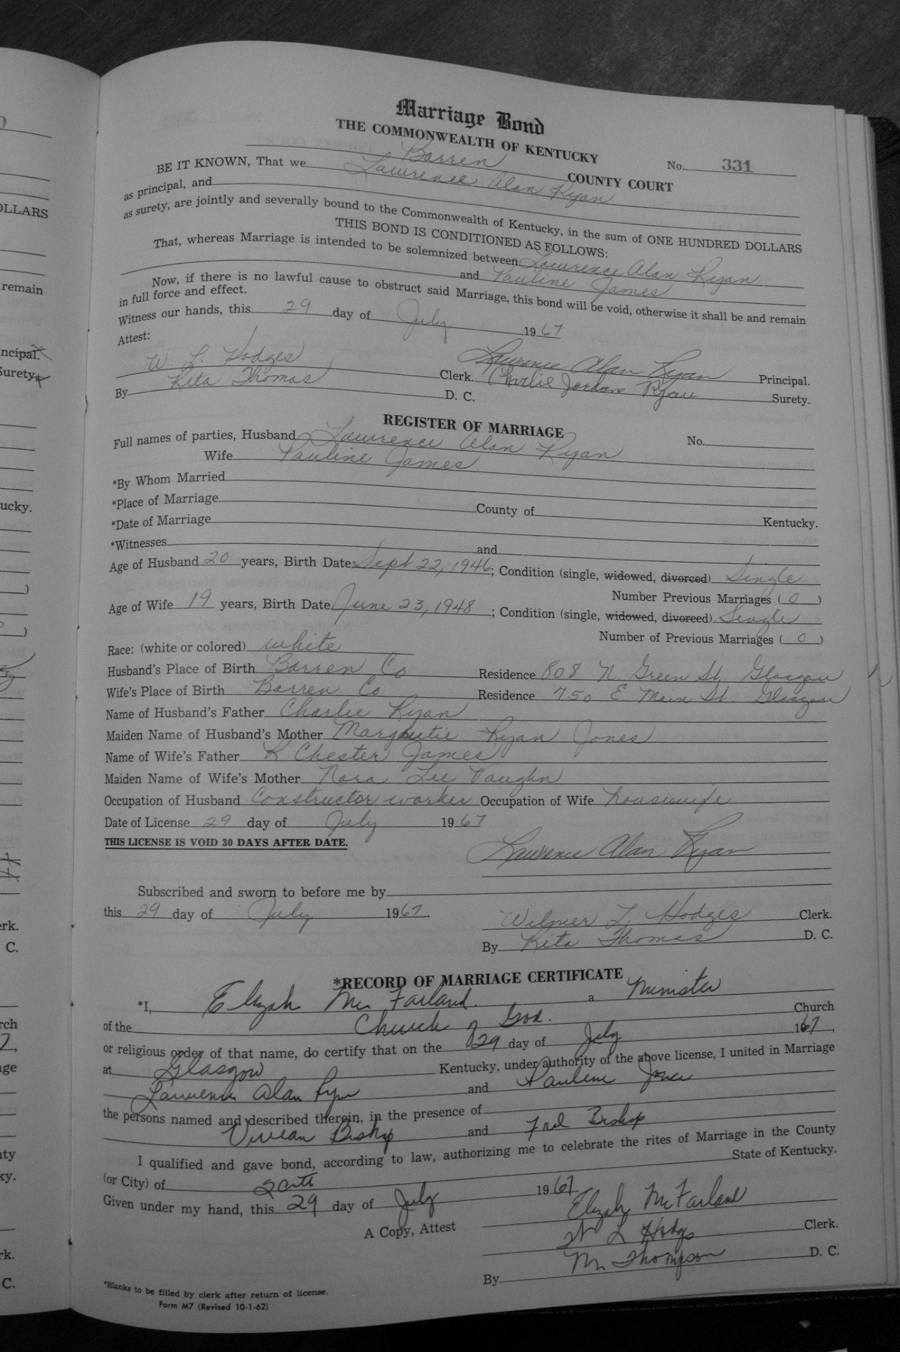 Marriage Bond
THE COMMONWEALTH OF KENTUCKY
No. 331
Barren COUNTY COURT
BE IT KNOWN, That we Lawrence Alan Ryan
as principal, and
as surety, are jointly and severally bound to the Commonwealth of Kentucky, in the sum of ONE HUNDRED DOLLARS
THIS BOND IS CONDITIONED AS FOLLOWS:
That, whereas Marriage is intended to be solemnized between Lawrence Alan Ryan
and Pauline James
Now, if there is no lawful cause to obstruct said Marriage, this bond will be void, otherwise it shall be and remain
in full force and effect.
Witness our hands, this 29 day of July 1967
Attest:
W. L. Hodges Clerk. Lawrence Alan Ryan Principal.
By Rita Thomas D. C. Charlie Jordan Ryan Surety.
REGISTER OF MARRIAGE
Full names of parties, Husband Lawrence Alan Ryan No.
Wife Pauline James
*By Whom Married
*Place of Marriage County of Kentucky.
*Date of Marriage
*Witnesses and
Age of Husband 20 years, Birth Date Sept 22, 1946; Condition (single, widowed, divorced) Single
Number Previous Marriages ( 0 )
Age of Wife 19 years, Birth Date June 23, 1948; Condition (single, widowed, divorced) Single
Number of Previous Marriages ( 0 )
Race: (white or colored) white
Husband's Place of Birth Barren Co Residence 808 N. Green St, Glasgow
Wife's Place of Birth Barren Co Residence 750 E Main St Glasgow
Name of Husband's Father Charlie Ryan
Maiden Name of Husband's Mother Ryan Jones
Name of Wife's Father K. Chester James
Maiden Name of Wife's Mother Nora Lee Vaughn
Occupation of Husband Constructor worker Occupation of Wife housewife
Date of License 29 day of July 1967
THIS LICENSE IS VOID 30 DAYS AFTER DATE.
Lawrence Alan Ryan
Subscribed and sworn to before me by
this 29 day of July 1967.
Wilmer L. Hodges Clerk.
By Rita Thomas D. C.
*RECORD OF MARRIAGE CERTIFICATE
*I, Elizah McFarland a Minister
of the Church of God. Church
or religious order of that name, do certify that on the 29 day of July 1967,
at Glasgow Kentucky, under authority of the above license, I united in Marriage
Lawrence Alan Ryan and Paulene
the persons named and described therein, in the presence of
Vivean Bishop and Fred Bishop
I qualified and gave bond, according to law, authorizing me to celebrate the rites of Marriage in the County
(or City) of State of Kentucky.
Given under my hand, this 29 day of July 1967
Elizah McFarland
A Copy, Attest W L Hodges Clerk.
By M. Thompson D. C.
*Blanks to be filled by clerk after return of license.
Form M7 (Revised 10-1-62)